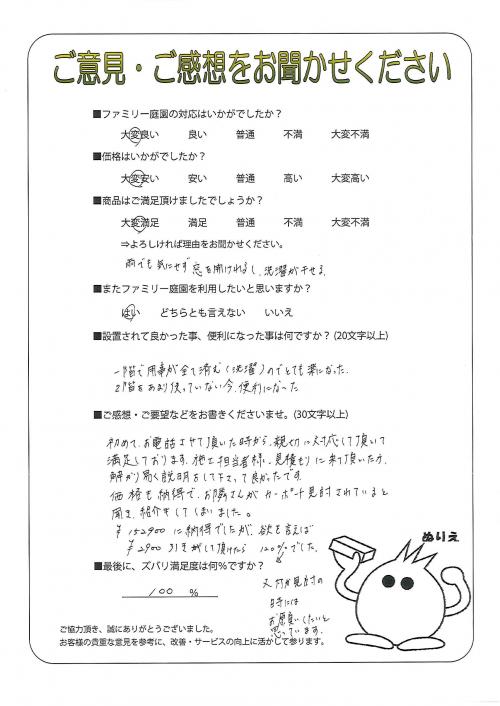 ご意見・ご感想をお聞かせください
■ファミリー庭園の対応はいかがでしたか？
大変良い 良い 普通 不満 大変不満
■価格はいかがでしたか？
大変安い 安い 普通 高い 大変高い
■商品はご満足頂けましたでしょうか？
大変満足 満足 普通 不満 大変不満
⇒よろしければ理由をお聞かせください。
雨でも気にせず窓を開けれるし、洗濯が干せる。
■またファミリー庭園を利用したいと思いますか？
はい どちらとも言えない いいえ
■設置されて良かった事、便利になった事は何ですか？(20文字以上)
一階で用事が全て済む(洗濯)のでとても楽になった。
2階をあまり使っていない今、便利になった
■ご感想・ご要望などをお書きくださいませ。(30文字以上)
初めて、お電話させて頂いた時から、親切に対応して頂いて
満足しております。施工担当者様、見積もりに来て頂いた方、
解かり易く説明をして下さって良かったです。
価格も納得で、お隣さんがカーポート見討されていると
聞き、紹介をしてしまいました。
¥152900に納得でしたが、欲を言えば
¥2900引きがして頂けたら120%でした。
■最後に、ズバリ満足度は何％ですか？
100 %
又何か見討の
時には
お願いしたいと
思っています。
ぬりえ
ご協力頂き、誠にありがとうございました。
お客様の貴重な意見を参考に、改善・サービスの向上に活かして参ります。